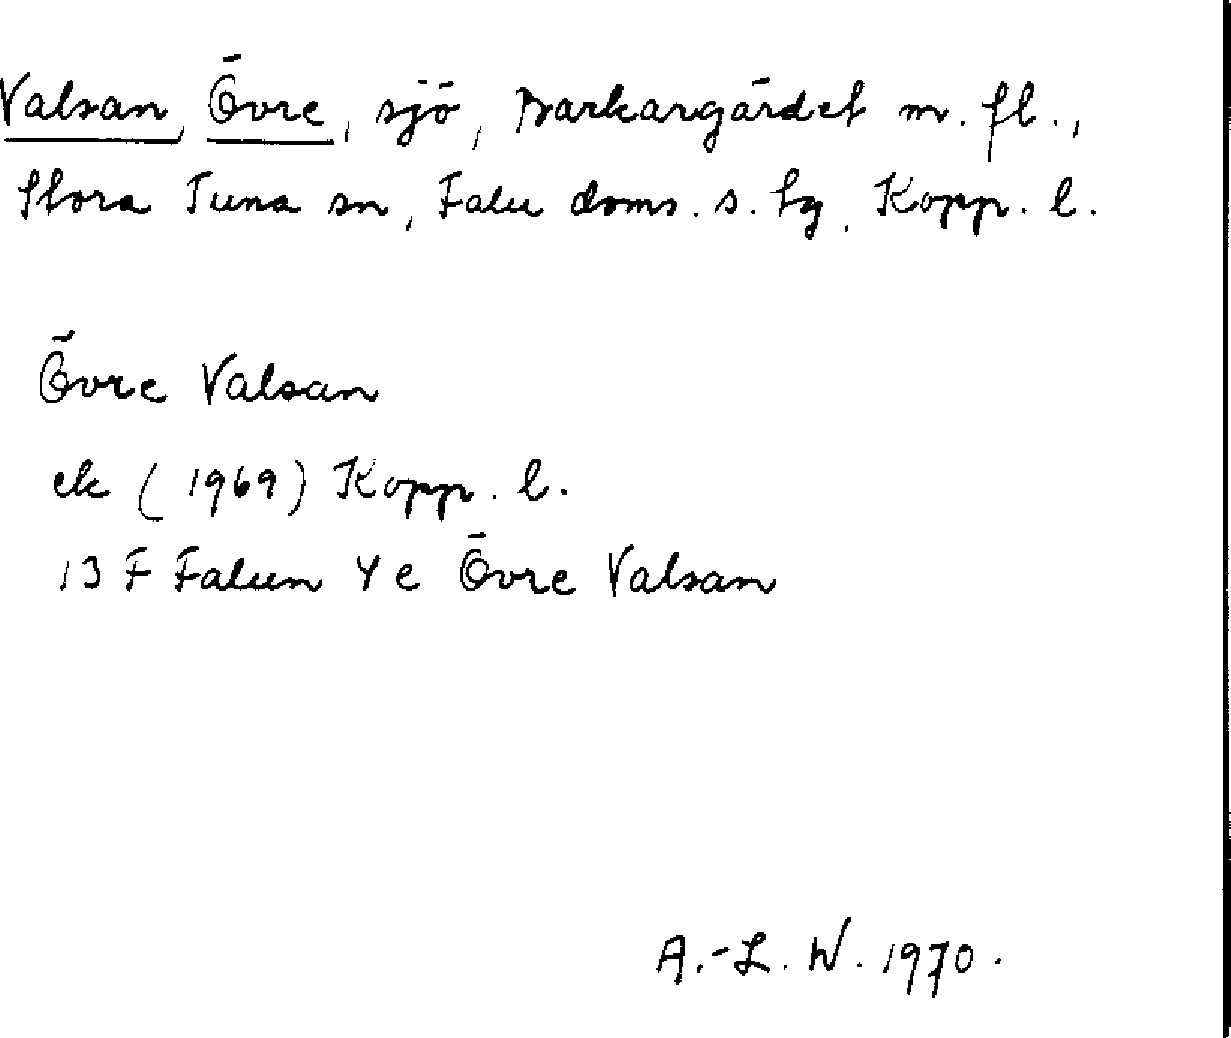 Valsan, Övre, sjö, Barkargärdet m. fl.,
Stora Tuna sn, Falu doms. s. tg. Kopp. l.
Övre Valsan
ek (1969) Kopp. l.
13 F Falun 4 e Övre Valsan
A.-L. W. 1970.